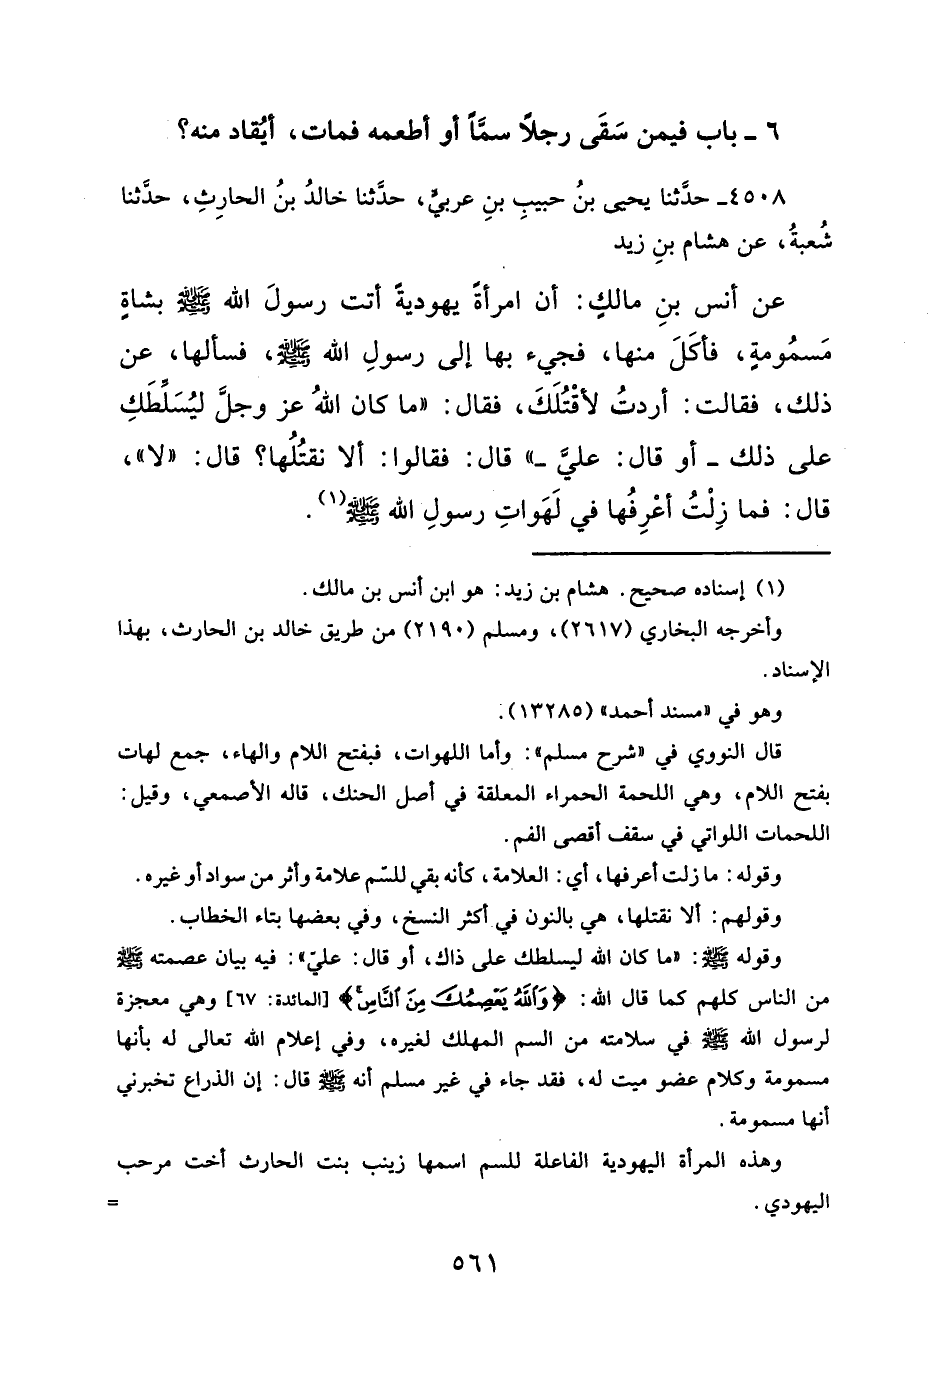 ٦ ـ باب فيمن سَقَى رجلاً سمَّاً أو أطعمه فمات، أيُقاد منه؟
٤٥٠٨ـ حدَّثنا يحيى بنُ حبيبِ بنِ عربيٍّ، حدَّثنا خالدُ بنُ الحارِثِ، حدَّثنا
شُعبةُ، عن هشام بنِ زيد
عن أنس بنِ مالكٍ: أن امرأةً يهوديةً أتت رسولَ الله ﷺ بشاةٍ
مَسمُومةٍ، فأكَلَ منها، فجيء بها إلى رسولِ الله ﷺ، فسألها، عن
ذلك، فقالت: أردتُ لأقْتُلَكَ، فقال: «ما كان اللهُ عز وجلَّ ليُسَلِّطَكِ
على ذلك ـ أو قال: عليَّ ـ» قال: فقالوا: ألا نقتُلُها؟ قال: «لا»،
قال: فما زِلْتُ أعْرِفُها في لَهَواتِ رسولِ الله ﷺ(١).
(١) إسناده صحيح. هشام بن زيد: هو ابن أنس بن مالك.
وأخرجه البخاري (٢٦١٧)، ومسلم (٢١٩٠) من طريق خالد بن الحارث، بهذا
الإسناد.
وهو في «مسند أحمد» (١٣٢٨٥).
قال النووي في «شرح مسلم»: وأما اللهوات، فبفتح اللام والهاء، جمع لهات
بفتح اللام، وهي اللحمة الحمراء المعلقة في أصل الحنك، قاله الأصمعي، وقيل:
اللحمات اللواتي في سقف أقصى الفم.
وقوله: ما زلت أعرفها، أي: العلامة، كأنه بقي للسّم علامة وأثر من سواد أو غيره.
وقولهم: ألا نقتلها، هي بالنون في أكثر النسخ، وفي بعضها بتاء الخطاب.
وقوله ﷺ: «ما كان الله ليسلطك على ذاك، أو قال: عليّ»: فيه بيان عصمته ﷺ
من الناس كلهم كما قال الله: ﴿وَٱللَّهُ يَعْصِمُكَ مِنَ ٱلنَّاسِ﴾ [المائدة: ٦٧] وهي معجزة
لرسول الله ﷺ في سلامته من السم المهلك لغيره، وفي إعلام الله تعالى له بأنها
مسمومة وكلام عضو ميت له، فقد جاء في غير مسلم أنه ﷺ قال: إن الذراع تخبرني
أنها مسمومة.
وهذه المرأة اليهودية الفاعلة للسم اسمها زينب بنت الحارث أخت مرحب
اليهودي. =
٥٦١